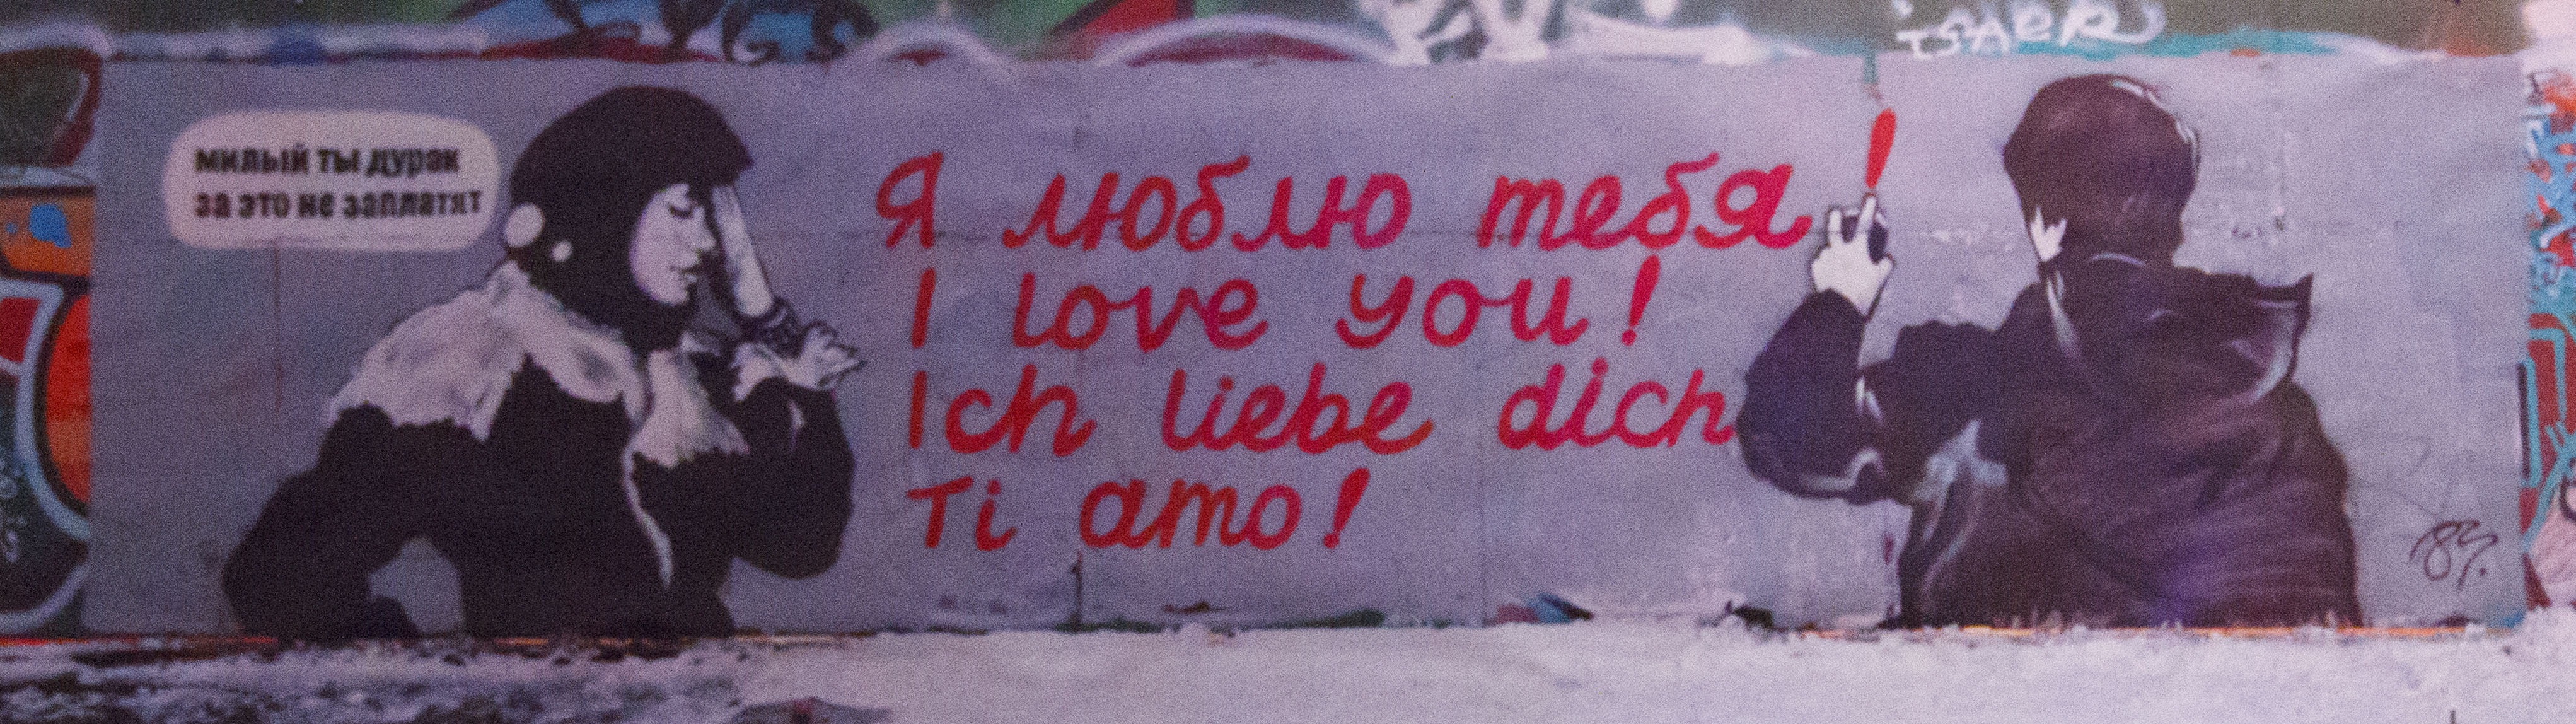 милый ты дурак
за это не заплатят
Я люблю тебя!
I love you!
Ich liebe dich
Ti amo!